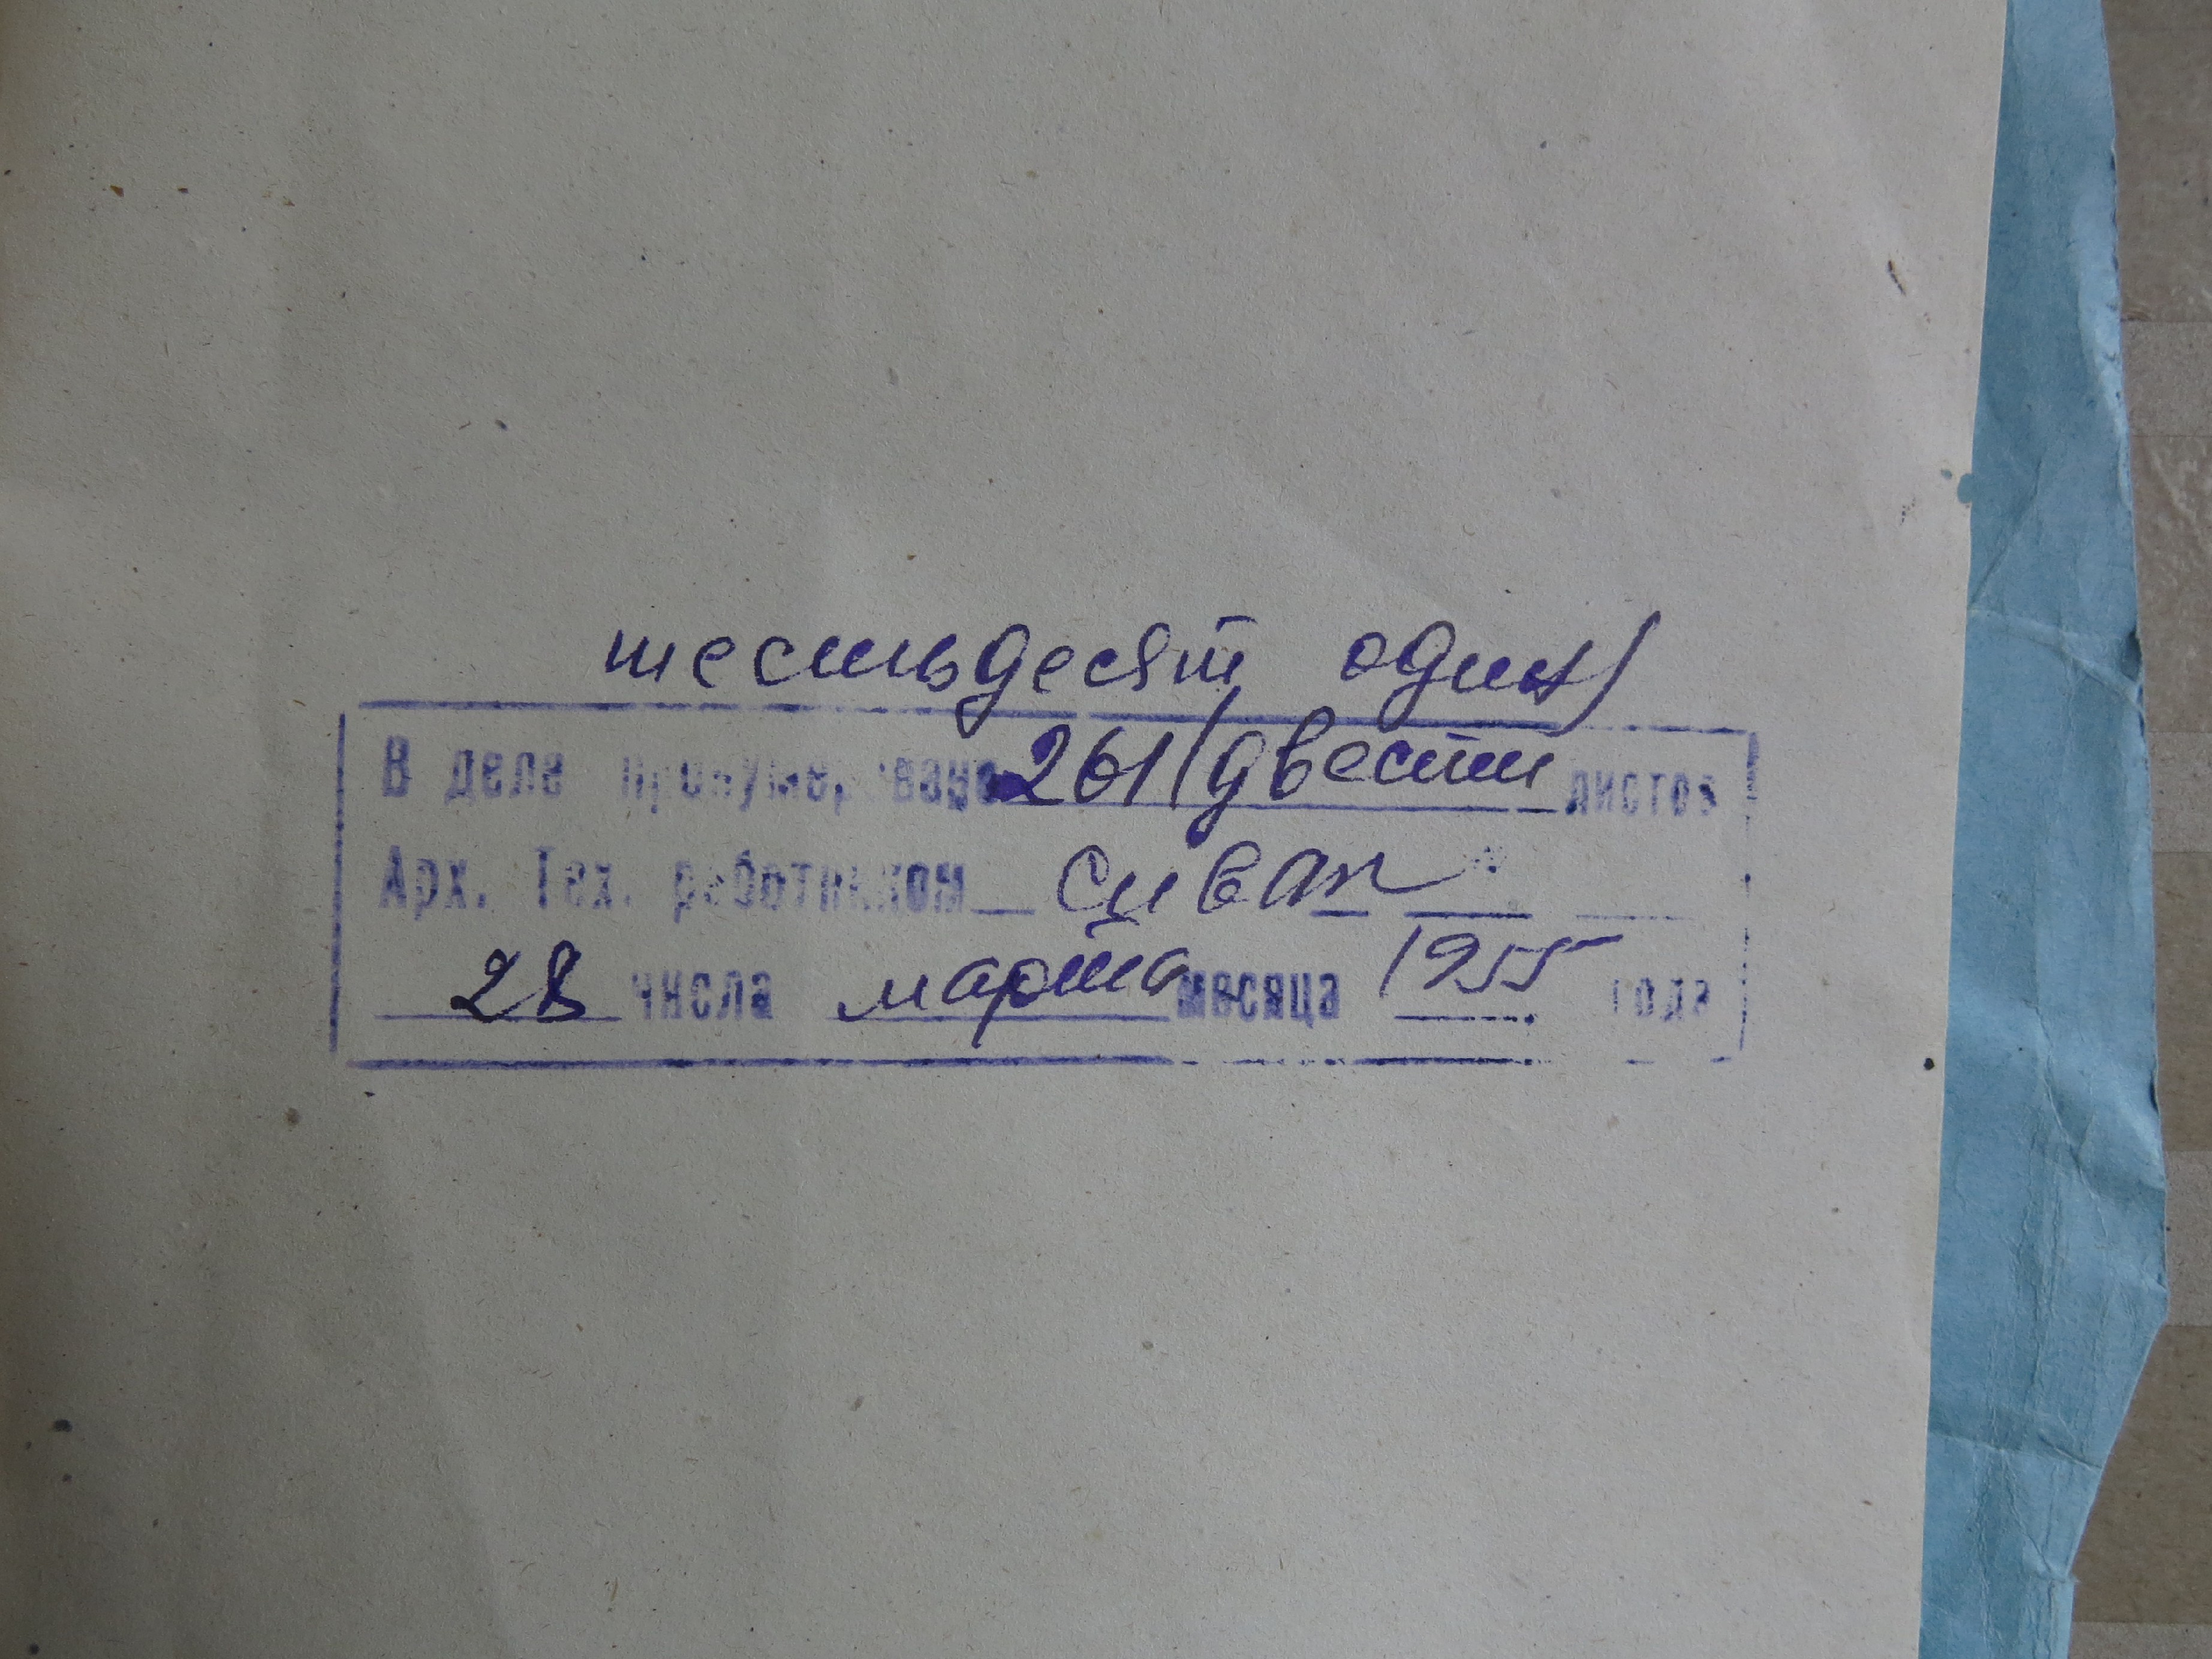 шестьдесят один)
В деле пронумеровано 261 (двести листов
Арх. Тех. работником Сиваш
28 числа марта месяца 1955 года